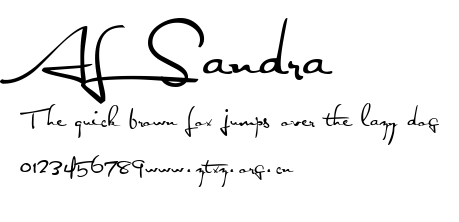 Af Sandra
The quick brown fox jumps over the lazy dog
0123456789www.ztxz.org.cn